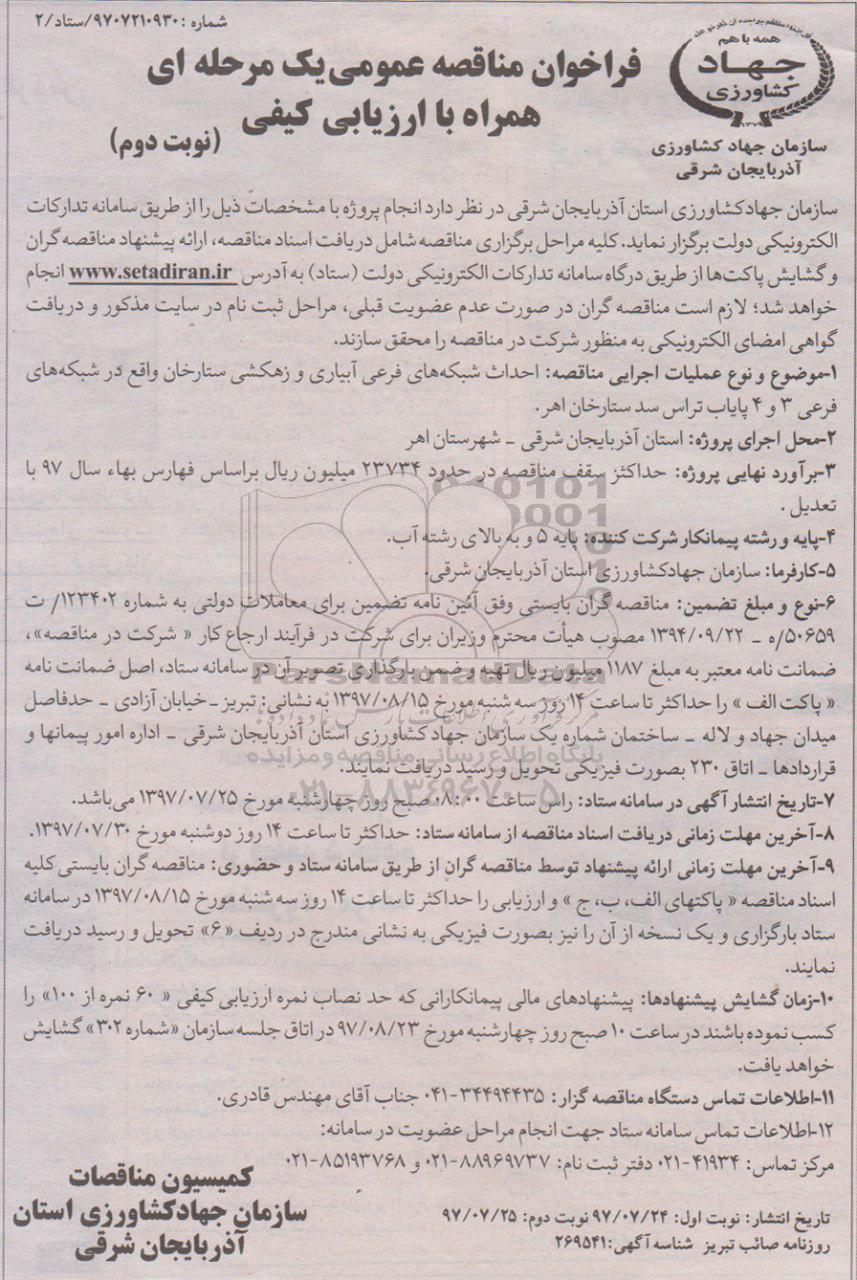 شماره : ۹۷۰۷۲۱۰۹۳۰/ستاد/۲
همه با هم
جهاد
کشاورزی
سازمان جهاد کشاورزی
آذربایجان شرقی
فراخوان مناقصه عمومی یک مرحله ای
همراه با ارزیابی کیفی
(نوبت دوم)
سازمان جهادکشاورزی استان آذربایجان شرقی در نظر دارد انجام پروژه با مشخصات ذیل را از طریق سامانه تدارکات
الکترونیکی دولت برگزار نماید. کلیه مراحل برگزاری مناقصه شامل دریافت اسناد مناقصه، ارائه پیشنهاد مناقصه گران
و گشایش پاکت‌ها از طریق درگاه سامانه تدارکات الکترونیکی دولت (ستاد) به آدرس www.setadiran.ir انجام
خواهد شد؛ لازم است مناقصه گران در صورت عدم عضویت قبلی، مراحل ثبت نام در سایت مذکور و دریافت
گواهی امضای الکترونیکی به منظور شرکت در مناقصه را محقق سازند.
۱-موضوع و نوع عملیات اجرایی مناقصه: احداث شبکه‌های فرعی آبیاری و زهکشی ستارخان واقع در شبکه‌های
فرعی ۳ و ۴ پایاب تراس سد ستارخان اهر.
۲-محل اجرای پروژه: استان آذربایجان شرقی - شهرستان اهر
۳-برآورد نهایی پروژه: حداکثر سقف مناقصه در حدود ۲۳۷۳۴ میلیون ریال براساس فهارس بهاء سال ۹۷ با
تعدیل .
۴-پایه و رشته پیمانکار شرکت کننده: پایه ۵ و به بالای رشته آب.
۵-کارفرما: سازمان جهادکشاورزی استان آذربایجان شرقی.
۶-نوع و مبلغ تضمین: مناقصه گران بایستی وفق آئین نامه تضمین برای معاملات دولتی به شماره ۱۲۳۴۰۲/ ت
۵۰۶۵۹/ه - ۱۳۹۴/۰۹/۲۲ مصوب هیأت محترم وزیران برای شرکت در فرآیند ارجاع کار « شرکت در مناقصه»،
ضمانت نامه معتبر به مبلغ ۱۱۸۷ میلیون ریال تهیه و ضمن بارگذاری تصویر آن در سامانه ستاد، اصل ضمانت نامه
« پاکت الف » را حداکثر تا ساعت ۱۴ روز سه شنبه مورخ ۱۳۹۷/۰۸/۱۵ به نشانی: تبریز - خیابان آزادی - حدفاصل
میدان جهاد و لاله - ساختمان شماره یک سازمان جهاد کشاورزی استان آذربایجان شرقی - اداره امور پیمانها و
قراردادها - اتاق ۲۳۰ بصورت فیزیکی تحویل و رسید دریافت نمایند.
۷-تاریخ انتشار آگهی در سامانه ستاد: راس ساعت ۰۸:۰۰ صبح روز چهارشنبه مورخ ۱۳۹۷/۰۷/۲۵ می‌باشد.
۸-آخرین مهلت زمانی دریافت اسناد مناقصه از سامانه ستاد: حداکثر تا ساعت ۱۴ روز دوشنبه مورخ ۱۳۹۷/۰۷/۳۰.
۹-آخرین مهلت زمانی ارائه پیشنهاد توسط مناقصه گران از طریق سامانه ستاد و حضوری: مناقصه گران بایستی کلیه
اسناد مناقصه « پاکتهای الف، ب، ج » و ارزیابی را حداکثر تا ساعت ۱۴ روز سه شنبه مورخ ۱۳۹۷/۰۸/۱۵ در سامانه
ستاد بارگزاری و یک نسخه از آن را نیز بصورت فیزیکی به نشانی مندرج در ردیف «۶» تحویل و رسید دریافت
نمایند.
۱۰-زمان گشایش پیشنهادها: پیشنهادهای مالی پیمانکارانی که حد نصاب نمره ارزیابی کیفی « ۶۰ نمره از ۱۰۰» را
کسب نموده باشند در ساعت ۱۰ صبح روز چهارشنبه مورخ ۹۷/۰۸/۲۳ در اتاق جلسه سازمان «شماره ۳۰۲» گشایش
خواهد یافت.
۱۱-اطلاعات تماس دستگاه مناقصه گزار: ۳۴۴۹۴۴۳۵-۰۴۱ جناب آقای مهندس قادری.
۱۲-اطلاعات تماس سامانه ستاد جهت انجام مراحل عضویت در سامانه:
مرکز تماس: ۴۱۹۳۴-۰۲۱ دفتر ثبت نام: ۸۸۹۶۹۷۳۷-۰۲۱ و ۸۵۱۹۳۷۶۸-۰۲۱
تاریخ انتشار: نوبت اول: ۹۷/۰۷/۲۴ نوبت دوم: ۹۷/۰۷/۲۵
روزنامه صائب تبریز شناسه آگهی: ۲۶۹۵۴۱
کمیسیون مناقصات
سازمان جهادکشاورزی استان
آذربایجان شرقی
ParsNamadData
پایگاه اطلاع رسانی مناقصه و مزایده
۰۲۱-۸۸۳۴۹۶۷۰-۵